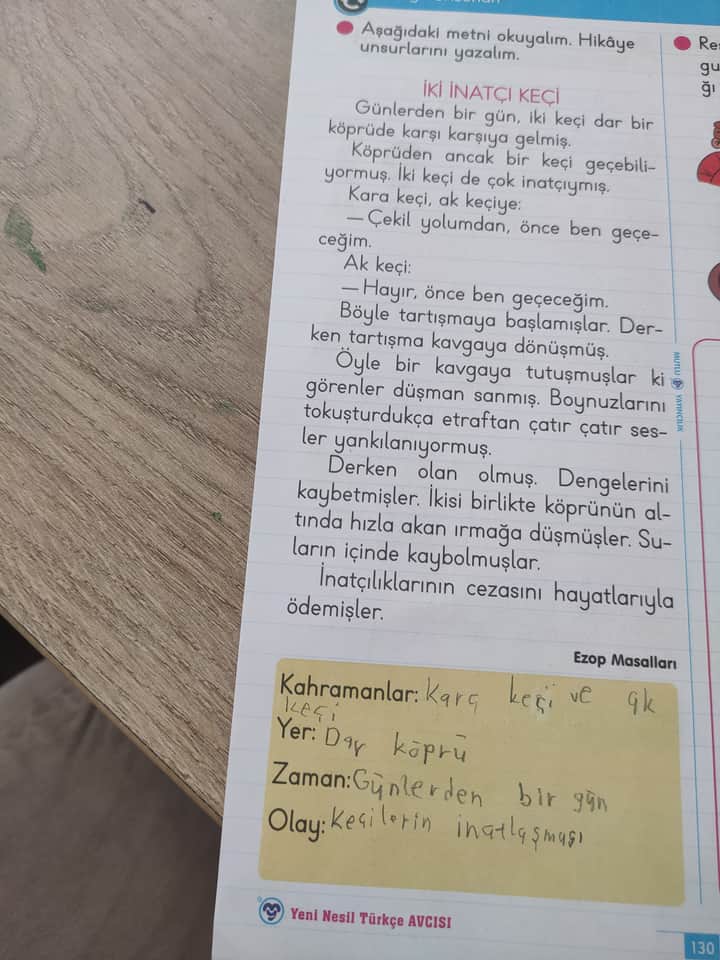 Aşağıdaki metni okuyalım. Hikâye
unsurlarını yazalım.
İKİ İNATÇI KEÇİ
Günlerden bir gün, iki keçi dar bir
köprüde karşı karşıya gelmiş.
Köprüden ancak bir keçi geçebili-
yormuş. İki keçi de çok inatçıymış.
Kara keçi, ak keçiye:
— Çekil yolumdan, önce ben geçe-
ceğim.
Ak keçi:
— Hayır, önce ben geçeceğim.
Böyle tartışmaya başlamışlar. Der-
ken tartışma kavgaya dönüşmüş.
Öyle bir kavgaya tutuşmuşlar ki
görenler düşman sanmış. Boynuzlarını
tokuşturdukça etraftan çatır çatır ses-
ler yankılanıyormuş.
Derken olan olmuş. Dengelerini
kaybetmişler. İkisi birlikte köprünün al-
tında hızla akan ırmağa düşmüşler. Su-
ların içinde kaybolmuşlar.
İnatçılıklarının cezasını hayatlarıyla
ödemişler.
Ezop Masalları
Kahramanlar: Kara keçi ve ak
keçi
Yer: Dar köprü
Zaman: Günlerden bir gün
Olay: Keçilerin inatlaşması
Yeni Nesil Türkçe AVCISI
130
MUTLU YAYINCILIK
gu
ğı